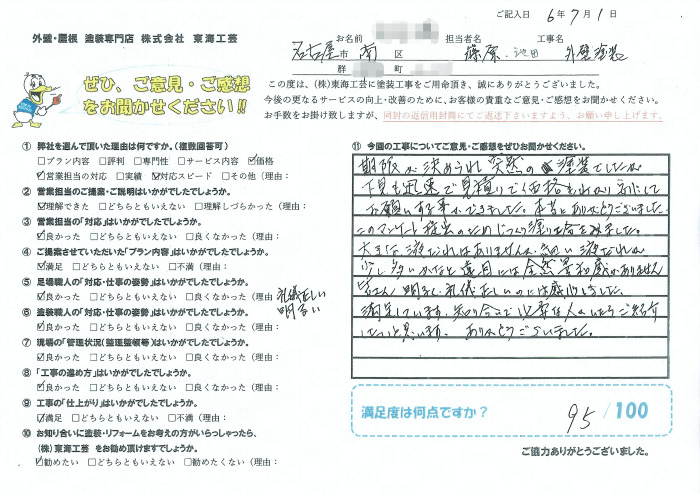 ご記入日 6年7月1日
外壁・屋根 塗装専門店 株式会社 東海工芸
お名前 担当者名 工事名
名古屋市 南区 篠原・池田 外壁塗装
群 町
ぜひ、ご意見・ご感想
をお聞かせください!!
この度は、(株)東海工芸に塗装工事をご用命頂き、誠にありがとうございました。
今後の更なるサービスの向上・改善のために、お客様の貴重なご意見・ご感想をお聞かせください。
お手数をお掛け致しますが、同封の返信用封筒にてご返送下さいますよう、お願い申し上げます。
① 弊社を選んで頂いた理由は何ですか。(複数回答可)
□プラン内容 □評判 □専門性 □サービス内容 ☑価格
☑営業担当の対応 □実績 ☑対応スピード □その他(理由:
② 営業担当のご提案・ご説明はいかがでしたでしょうか。
☑理解できた □どちらともいえない □理解しづらかった(理由:
③ 営業担当の「対応」はいかがでしたでしょうか。
☑良かった □どちらともいえない □良くなかった(理由:
④ ご提案させていただいた「プラン内容」はいかがでしたでしょうか。
☑満足 □どちらともいえない □不満(理由:
⑤ 足場職人の「対応・仕事の姿勢」はいかがでしたでしょうか。
☑良かった □どちらともいえない □良くなかった(理由: 礼儀正しい
⑥ 塗装職人の「対応・仕事の姿勢」はいかがでしたでしょうか。 明るい
☑良かった □どちらともいえない □良くなかった(理由:
⑦ 現場の「管理状況(整理整頓等)」はいかがでしたでしょうか。
☑良かった □どちらともいえない □良くなかった(理由:
⑧ 「工事の進め方」はいかがでしたでしょうか。
☑良かった □どちらともいえない □良くなかった(理由:
⑨ 工事の「仕上がり」はいかがでしたでしょうか。
☑満足 □どちらともいえない □不満(理由:
⑩ お知り合いに塗装・リフォームをお考えの方がいらっしゃったら、
(株)東海工芸 をお勧め頂けますでしょうか。
☑勧めたい □どちらともいえない □勧めたくない(理由:
⑪ 今回の工事についてご意見・ご感想をぜひお聞かせください。
期限が決められ突然の塗装でしたが
下見も迅速で見積りで価格も
お願いする事ができました。本当にありがとうございました。
このアンケート提出のためじっくり塗り具合をみました。
大きな液だれはありませんが、細い液だれが
少し多いかなと 遠目には全然違和感がありません
皆さん明るく、礼儀正しいのには感心しました。
満足しています。知り合いで必要な人がいたらご紹介
したいと思います。ありがとうございました。
満足度は何点ですか? 95/100
ご協力ありがとうございました。